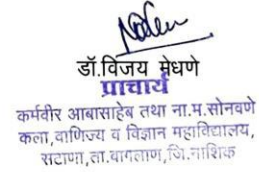 डॉ.विजय मेधणे
प्राचार्य
कर्मवीर आबासाहेब तथा ना.म.सोनवणे
कला,वाणिज्य व विज्ञान महाविद्यालय,
सटाणा,ता.बागलाण,जि.नाशिक